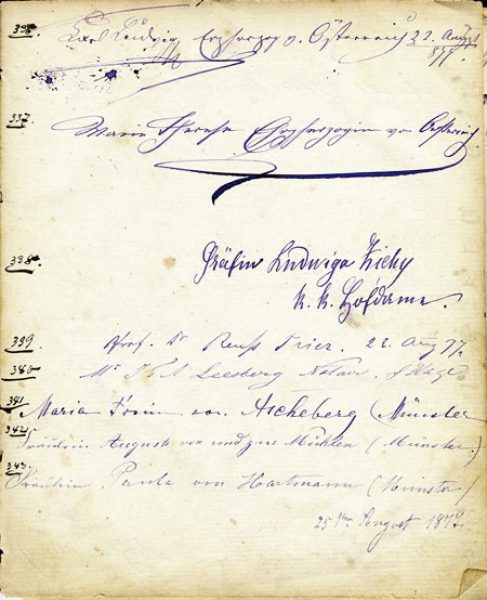 336. Karl Ludwig Erzherzog v. Österreich 22. August
877.
337. Marie Therese Erzherzogin von Österreich
338. Gräfin Ludwiga Zichy
k. k. Hofdame.
339 Prof. Dr Reuß Trier. 22. Aug 77.
340 Mr Leesberg Notare.
341 Maria Freiin von Ascheberg (Münster
342. Fräulein Auguste von und zur Mühlen (Münster.)
343. Fräulein Paula von Hartmann (Münster)
25ten August 1877.